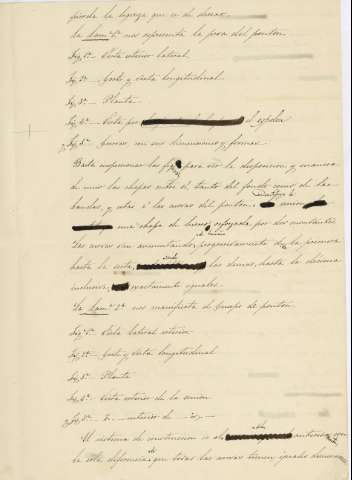 pierda la ligereza que es de desear.
La Lamª 1ª nos representa la proa del pontón
Fig. 1ª - Vista esterior lateral.
Fig. 2ª - Corte y vista longitudinal
Fig. 3ª - Planta.
Fig. 4ª - Vista por el espolon
y Fig. 5ª - Curvas, con sus dimensiones y formas.
Basta inspeccionar las figs para ver la disposicion, y manera
de unir las chapas entre sí, tanto del fondo como de las
bandas, y estas á las curvas del pontón.
una chapa de hierro reforzada por dos montantes.
Las curvas van aumentando progresivamente de la primera
hasta la sesta, las demas, hasta la décima
inclusive, exactamente iguales.
La Lamª 2ª nos manifiesta el cuerpo de pontón
Fig. 1ª - Vista lateral esterior
Fig. 2ª - Corte y vista longitudinal
Fig. 3ª - Planta
Fig. 4ª - Vista esterior de la union
y Fig. 5ª - interior de
El sistema de construccion es el anterior con
la sola diferencia de que todas las curvas tienen iguales dimen